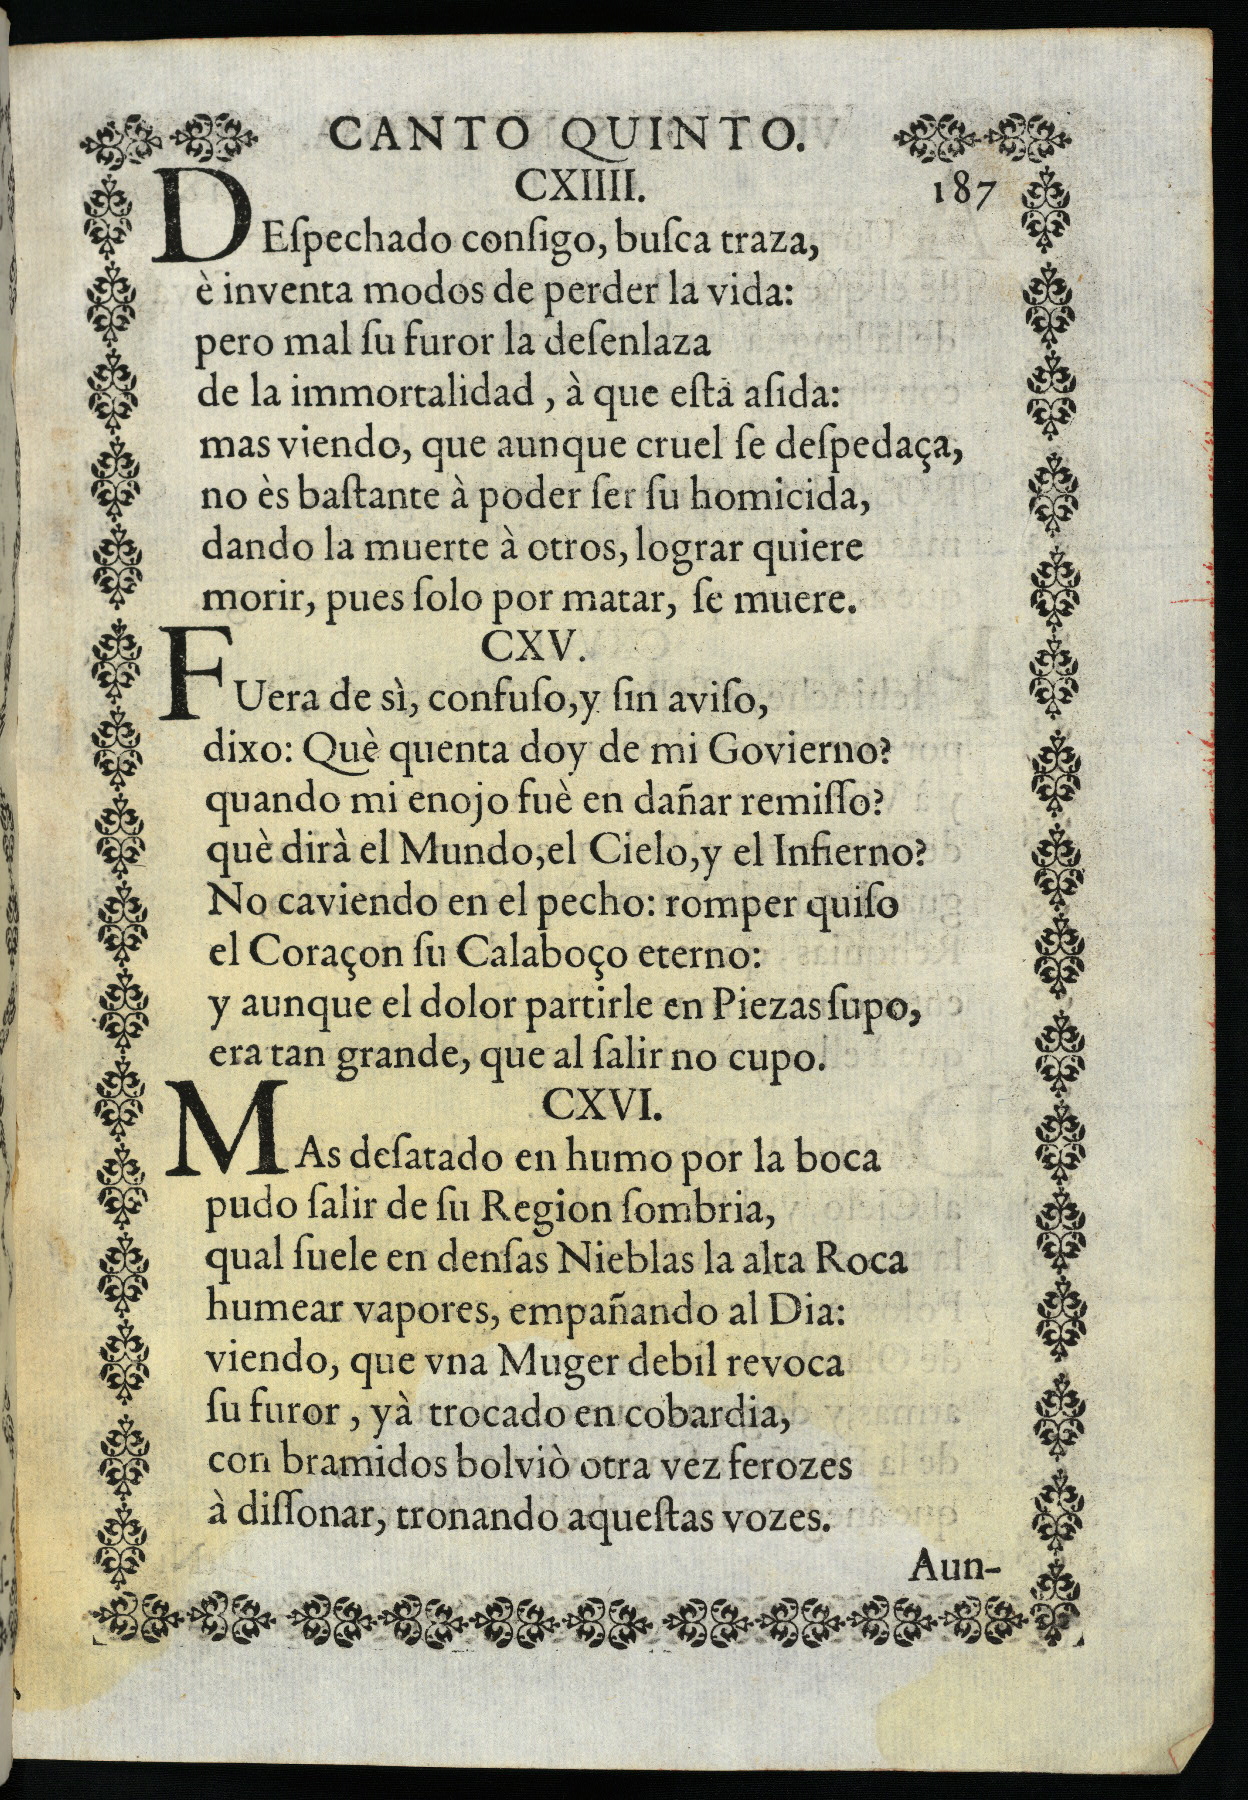 CANTO QUINTO.
CXIIII. 187
DEſpechado conſigo, buſca traza,
è inventa modos de perder la vida:
pero mal ſu furor la deſenlaza
de la immortalidad , à que eſtà aſida:
mas viendo, que aunque cruel ſe deſpedaça,
no ès baſtante à poder ſer ſu homicida,
dando la muerte à otros, lograr quiere
morir, pues ſolo por matar, ſe muere.
CXV.
FUera de sì, confuſo,y ſin aviſo,
dixo: Què quenta doy de mi Govierno?
quando mi enojo fuè en dañar remiſſo?
què dirà el Mundo,el Cielo,y el Infierno?
No caviendo en el pecho: romper quiſo
el Coraçon ſu Calaboço eterno:
y aunque el dolor partirle en Piezas ſupo,
era tan grande, que al ſalir no cupo.
CXVI.
MAs deſatado en humo por la boca
pudo ſalir de ſu Region ſombria,
qual ſuele en denſas Nieblas la alta Roca
humear vapores, empañando al Dia:
viendo, que vna Muger debil revoca
ſu furor , yà trocado en cobardia,
con bramidos bolviò otra vez ferozes
à diſſonar, tronando aqueſtas vozes.
Aun-